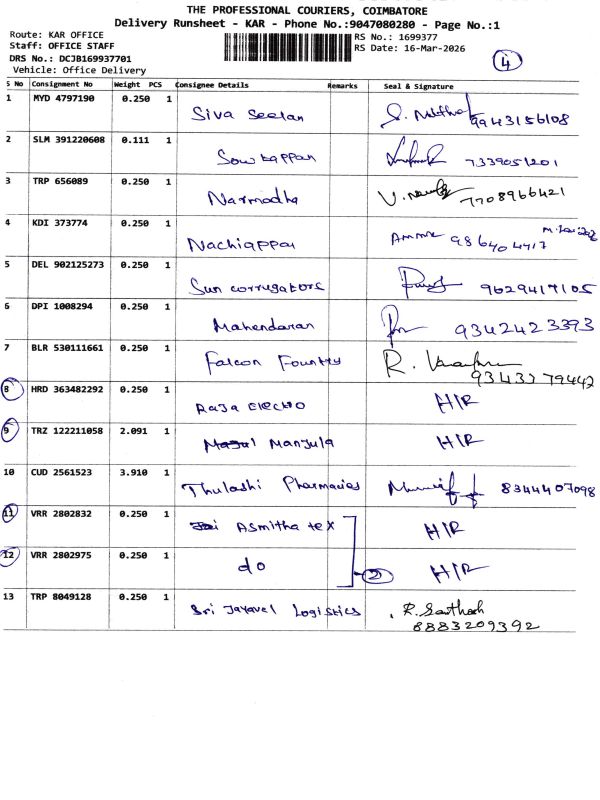 THE PROFESSIONAL COURIERS, COIMBATORE
Delivery Runsheet - KAR - Phone No.:9047080280 - Page No.:1
Route: KAR OFFICE
Staff: OFFICE STAFF
DRS No.: DCJB169937701
Vehicle: Office Delivery
RS No.: 1699377
RS Date: 16-Mar-2026
4
S No Consignment No Weight PCS Consignee Details Remarks Seal & Signature
1 MYD 4797190 0.250 1 Siva Seelan 9943156108
2 SLM 391220608 0.111 1 Sowbappan 7339051201
3 TRP 656089 0.250 1 Narmadha 7708966421
4 KDI 373774 0.250 1 Nachiappan
5 DEL 902125273 0.250 1 Sun corrugators 9629417105
6 DPI 1008294 0.250 1 Mahendaran 9342423393
7 BLR 530111661 0.250 1 Falcon Foundry R. 9343379442
8 HRD 363482292 0.250 1 Raja Electro H/R
9 TRZ 122211058 2.091 1 Manjula H/R
10 CUD 2561523 3.910 1 Thulashi Pharmacies 8344407098
11 VRR 2802832 0.250 1 Asmitha tex H/R
12 VRR 2802975 0.250 1 do 2 H/R
13 TRP 8049128 0.250 1 Sri Jayavel Logistics R. Santhosh
8883209392